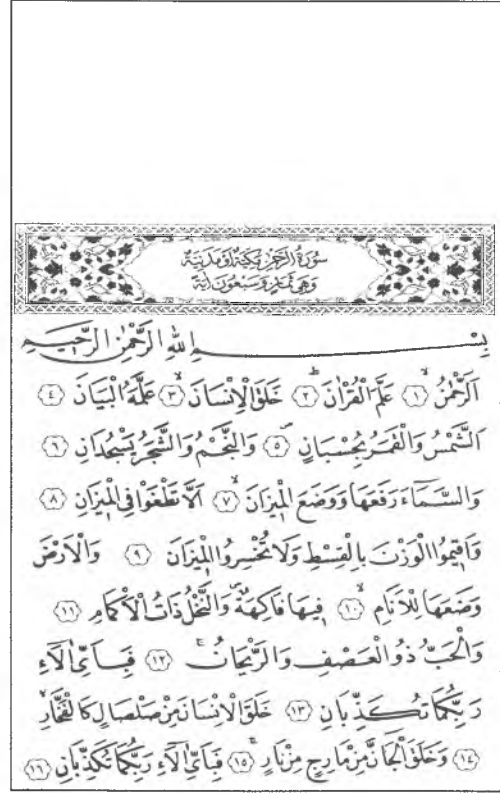 سُورَةُ الرَّحْمٰنِ مَكِّيَّةٌ اَوْ مَدَنِيَّةٌ
وَهِىَ ثَمَانٍ وَسَبْعُونَ اٰيَةً
بِسْمِ اللّٰهِ الرَّحْمٰنِ الرَّحِيمِ
اَلرَّحْمٰنُۙ ﴿١﴾ عَلَّمَ الْقُرْاٰنَۜ ﴿٢﴾ خَلَقَ الْاِنْسَانَۙ ﴿٣﴾ عَلَّمَهُ الْبَيَانَ ﴿٤﴾
اَلشَّمْسُ وَالْقَمَرُ بِحُسْبَانٍۖ ﴿٥﴾ وَالنَّجْمُ وَالشَّجَرُ يَسْجُدَانِ ﴿٦﴾
وَالسَّمَٓاءَ رَفَعَهَا وَوَضَعَ الْمِيزَانَۙ ﴿٧﴾ اَلَّا تَطْغَوْا فِى الْمِيزَانِ ﴿٨﴾
وَاَقِيمُوا الْوَزْنَ بِالْقِسْطِ وَلَا تُخْسِرُوا الْمِيزَانَ ﴿٩﴾ وَالْاَرْضَ
وَضَعَهَا لِلْاَنَامِۙ ﴿١٠﴾ فِيهَا فَاكِهَةٌۖ وَالنَّخْلُ ذَاتُ الْاَكْمَامِ ﴿١١﴾
وَالْحَبُّ ذُو الْعَصْفِ وَالرَّيْحَانُۚ ﴿١٢﴾ فَبِاَىِّ اٰلَٓاءِ
رَبِّكُمَا تُكَذِّبَانِ ﴿١٣﴾ خَلَقَ الْاِنْسَانَ مِنْ صَلْصَالٍ كَالْفَخَّارِۙ
﴿١٤﴾ وَخَلَقَ الْجَٓانَّ مِنْ مَارِجٍ مِنْ نَارٍۚ ﴿١٥﴾ فَبِاَىِّ اٰلَٓاءِ رَبِّكُمَا تُكَذِّبَانِ ﴿١٦﴾